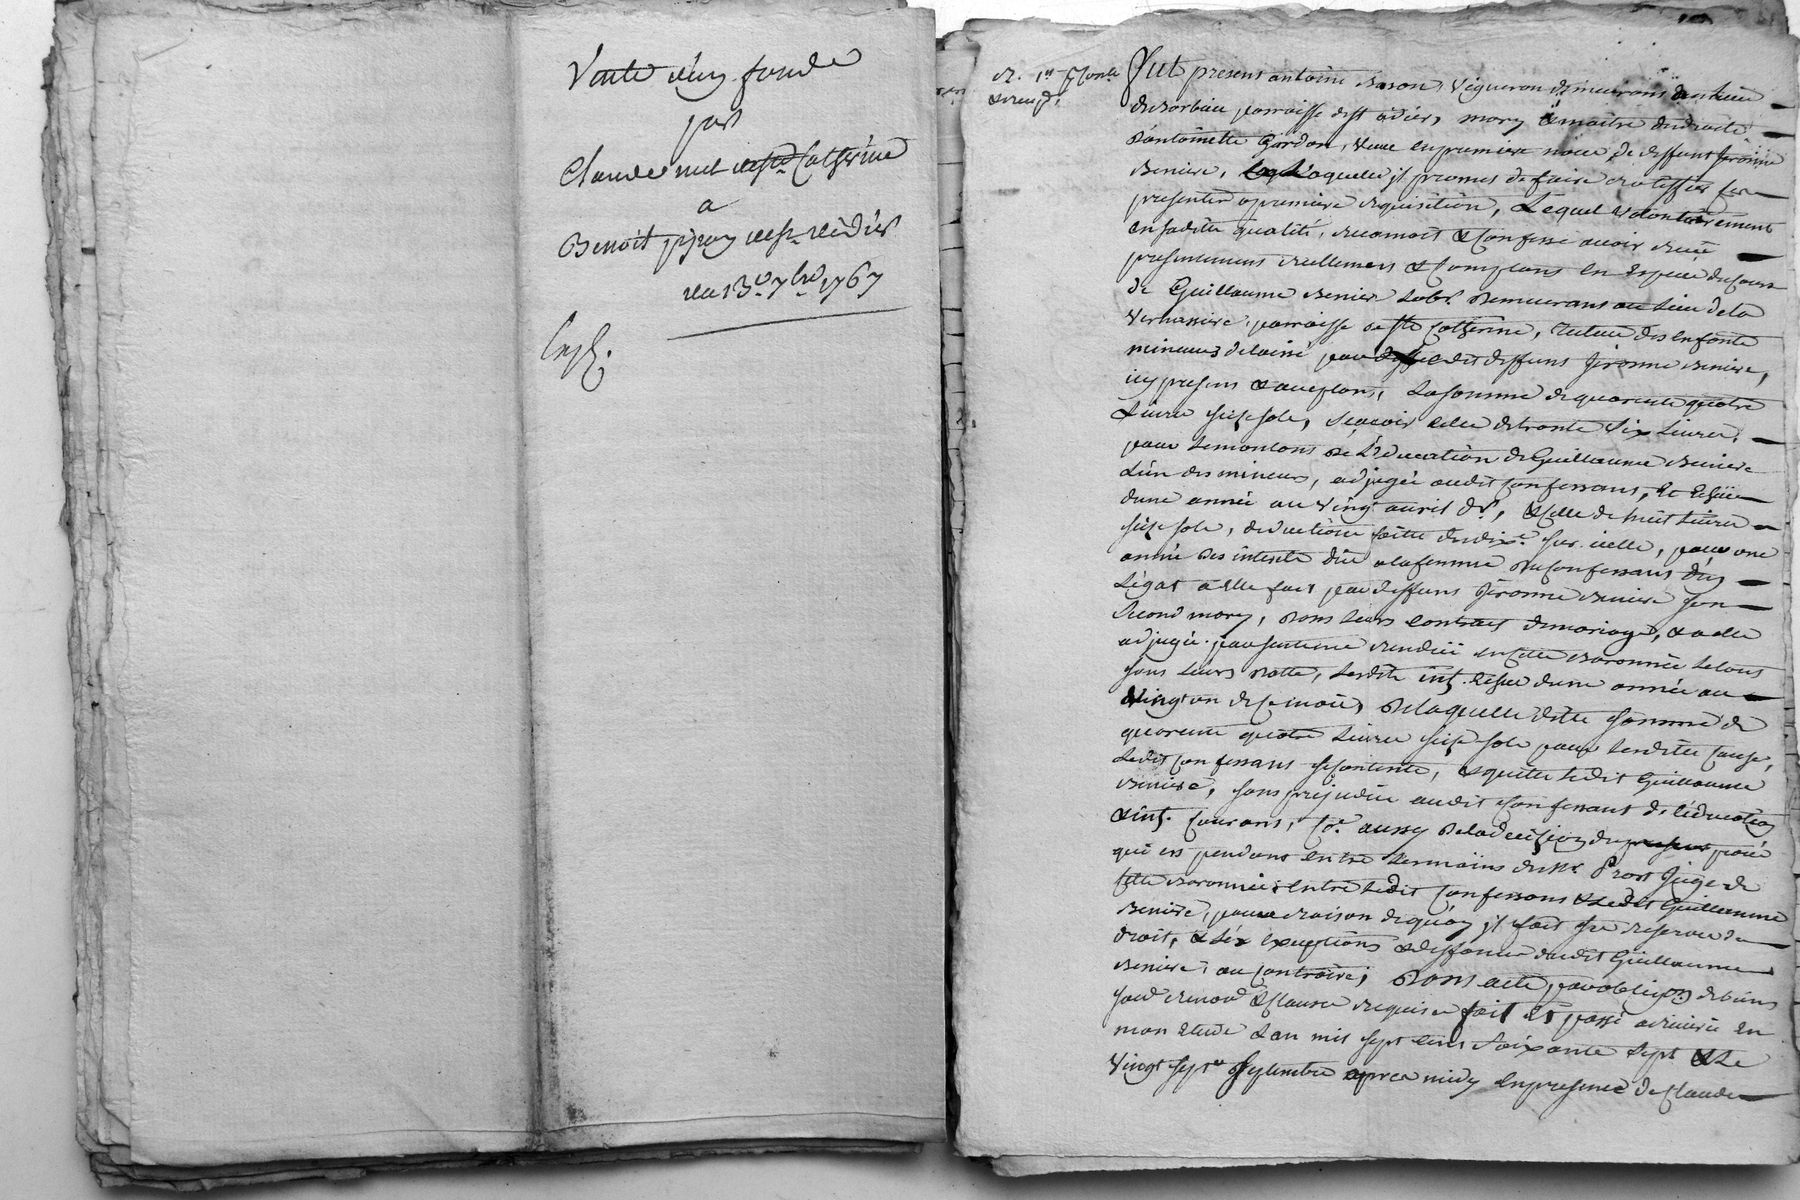 Vente d'un fonds
par
Claude de Ste Catherine
a
Benoit pijay de st didier
du 13e 7bre 1767
Fut presens antoine vigneron demeurans au lieu
parroisse de st didier, mary & maitre des droits
d'antoinette Gardon, veuve en premiere noce de deffunt Jerome
Beniere, Laquelle il promet de faire ratiffier
presenter a premiere requisition, Lequel volontairement
en sadite qualité, reconnoit & confesse avoir receu
presentement reellement & comptans en espece du cours
de Guillaume Benier Labr. demeurans au lieu de la
parroisse de ste Catherine, tuteur des enfants
mineurs delaissé par ledit deffuns Jerome Beniere,
icy presens & acceptans, La somme de quarente quatre
Livres seize sols, scavoir celle de trente six Livres,
pour le montans de L'education de Guillaume Beniere
L'un des mineurs, adjugée audit confessans, et echüe
dune année au vingt avril dr, & celle de huit Livres
seize sols, deduction faitte du dixe. sur icelle, pour une
année des interets düe a la femme du confessans d'un
Légat a elle fait par deffuns Jerome Beniere son
second mary, dans leurs contrat de mariage, & a elle
adjugée par sentence rendüe en cette Baronnie le tout
sous leurs datte, lesdits int. echus dune année au
vingt un de ce mois, De laquelle ditte somme de
quarente quatre Livres seize sols pour lesdittes cause,
Ledit confessans se contente, & quitte ledit Guillaume
Beniere, sans prejudice audit confessant de l'éducation
& int. courans, Co.e aussy de la decision du
qui es pendans entre les mains du Sr. Prost Juge de
cette Baronnie entre Ledit confessans & Ledit Guillaume
Beniere, pour raison de quoy il fait
droit, & Les exceptions & deffences dudit Guillaume
Beniere, au contraire, Dons acte, par obligaon. de biens
renon. & clauses requises fait et passé a en
mon etude L'an mil sept cent soixante sept & Le
vingt septe septembre apres midy en presence de Claude